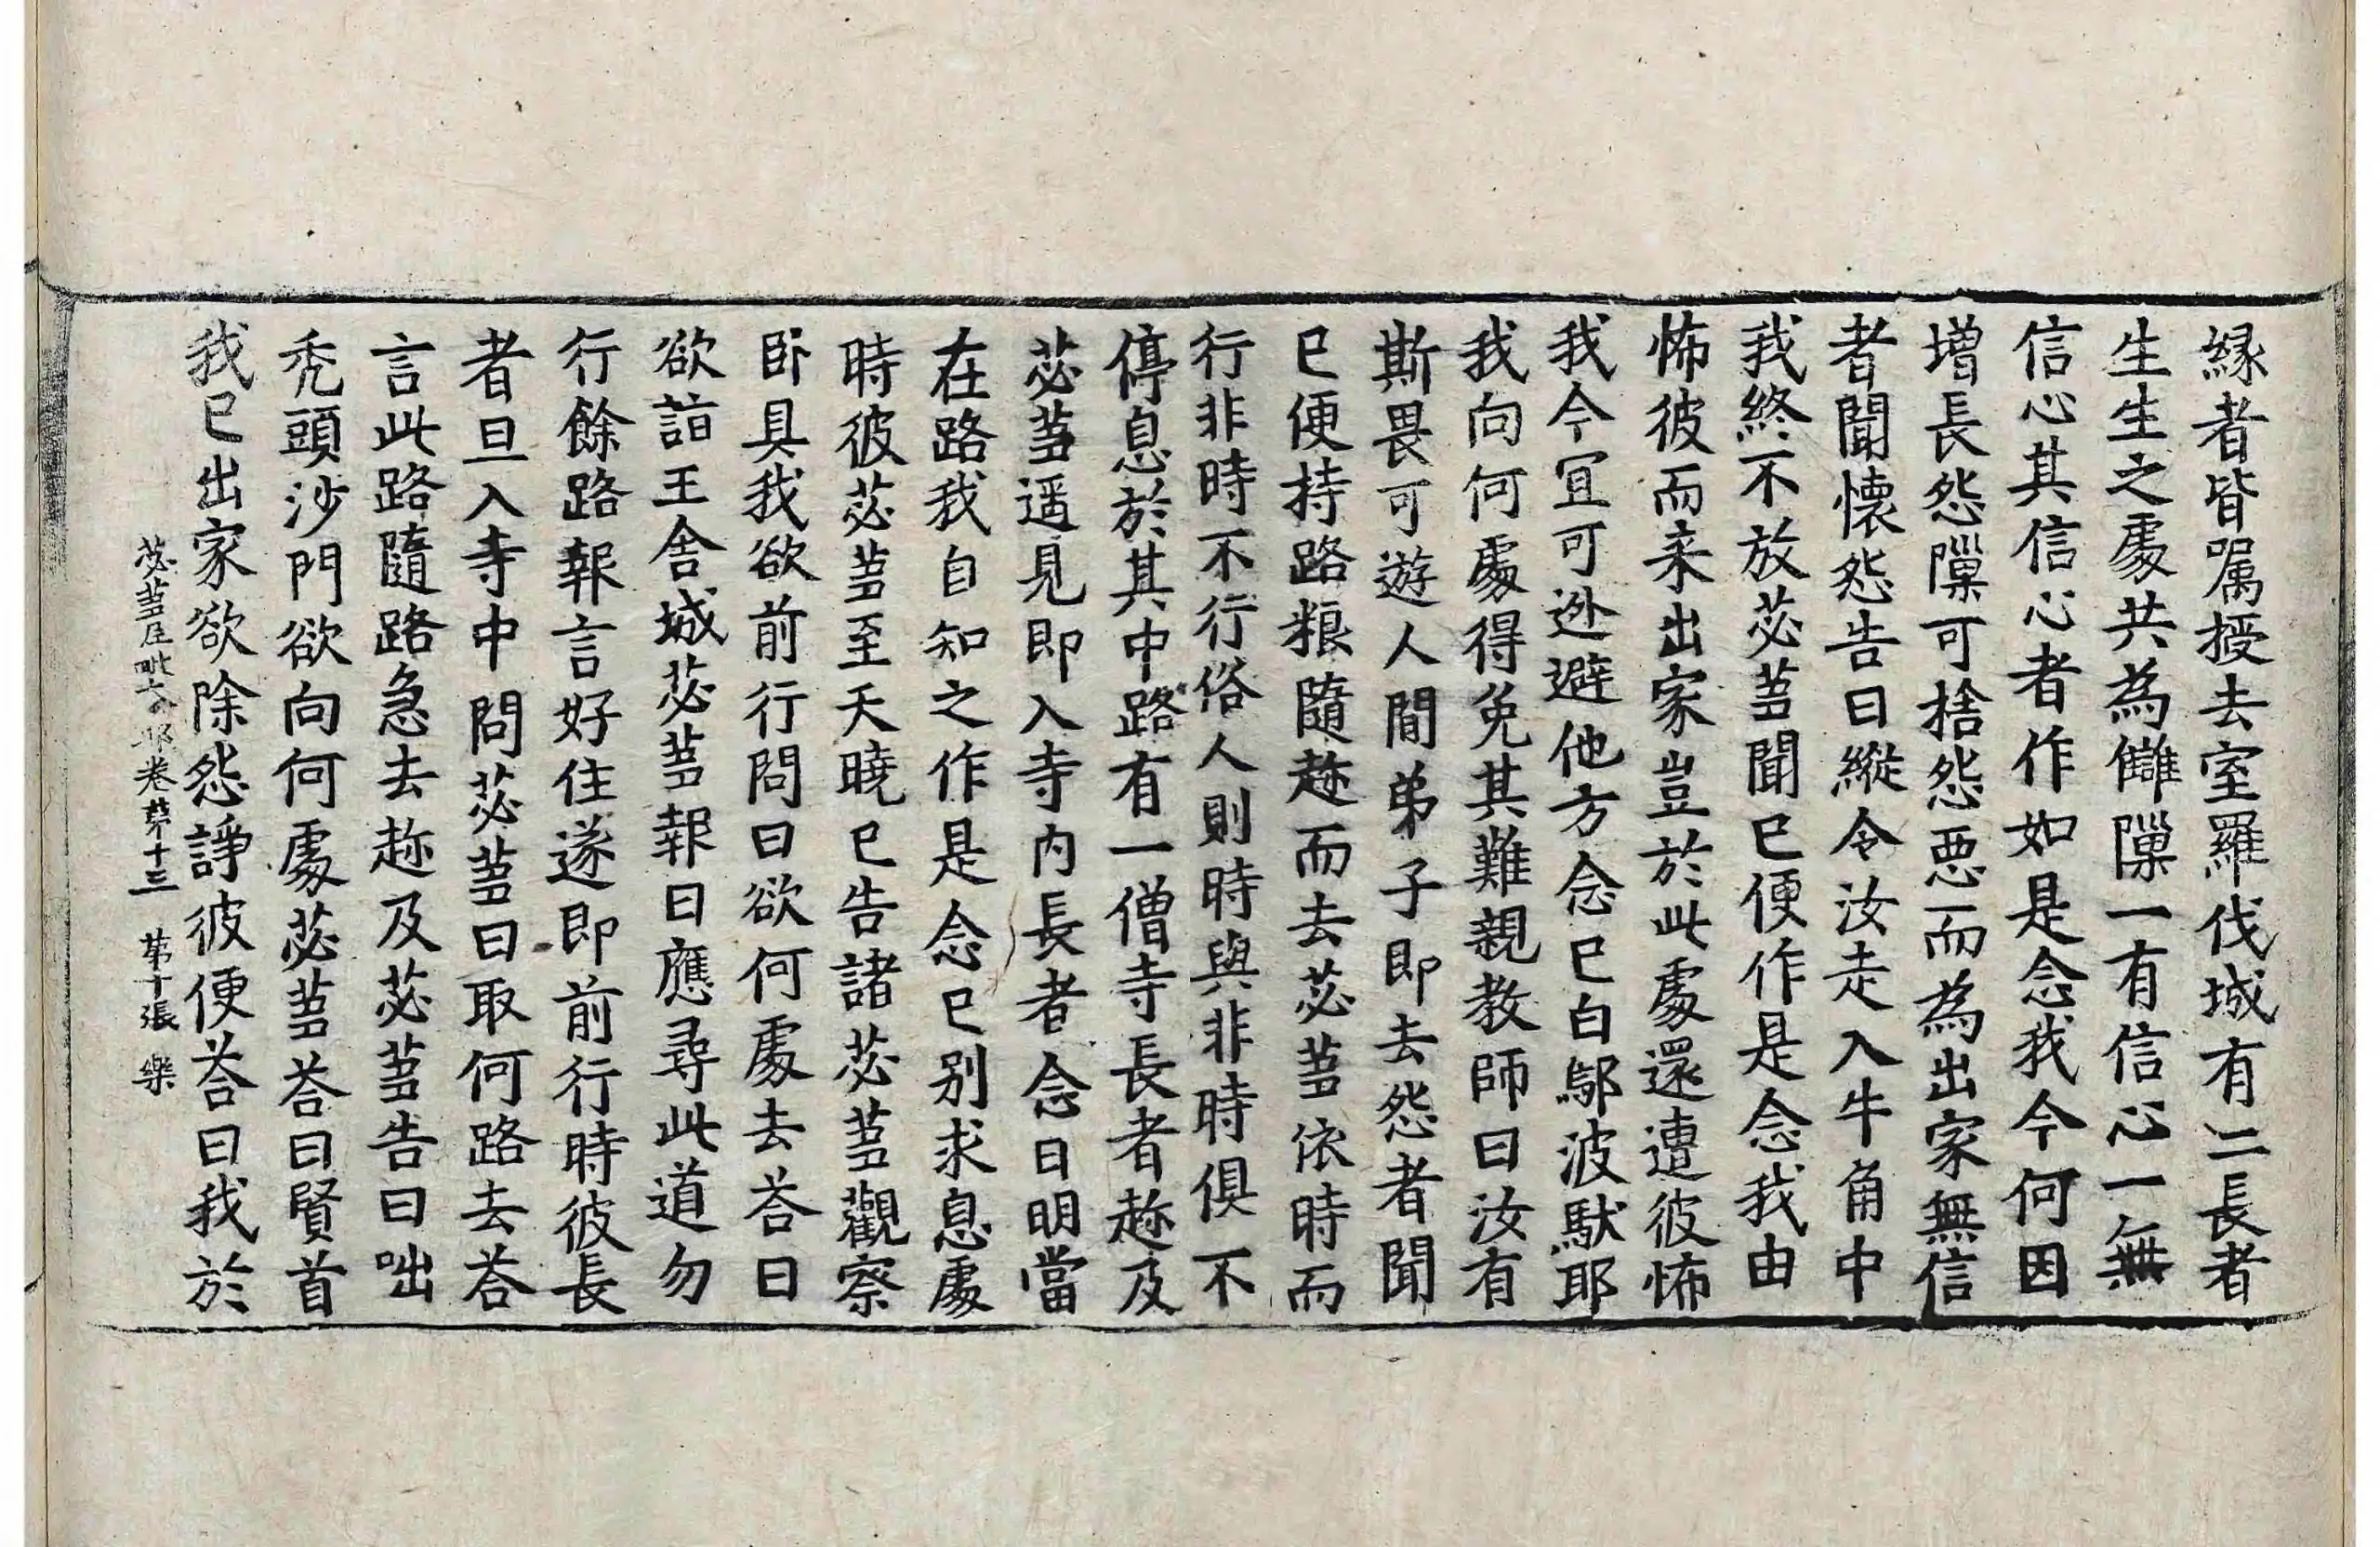 縁者皆属授去室羅伐城有二長者
生生之處共為讎隟一有信心一無
信心其信心者作如是念我今何因
增長怨隟可捨怨惡而為出家無信
者聞懷怨告曰縱令汝走入牛角中
我終不放苾蒭聞已便作是念我由
怖彼而来出家豈於此處還遭彼怖
我今宜可迯避他方念已白鄔波馱耶
我向何處得免其難親教師曰汝有
斯畏可遊人間弟子即去怨者聞
已便持路粮隨趂而去苾蒭依時而
行非時不行俗人則時與非時俱不
停息於其中路有一僧寺長者趂及
苾蒭遥見即入寺内長者念曰明當
在路我自知之作是念已別求息處
時彼苾蒭至天曉已告諸苾蒭觀察
卧具我欲前行問曰欲何處去荅曰
欲詣王舍城苾蒭報曰應尋此道勿
行餘路報言好住遂即前行時彼長
者旦入寺中問苾蒭曰取何路去荅
言此路隨路急去趂及苾蒭告曰咄
禿頭沙門欲向何處苾蒭荅曰賢首
我已出家欲除怨諍彼便荅曰我於
苾蒭尼毗奈耶卷苐十三 苐十張 樂